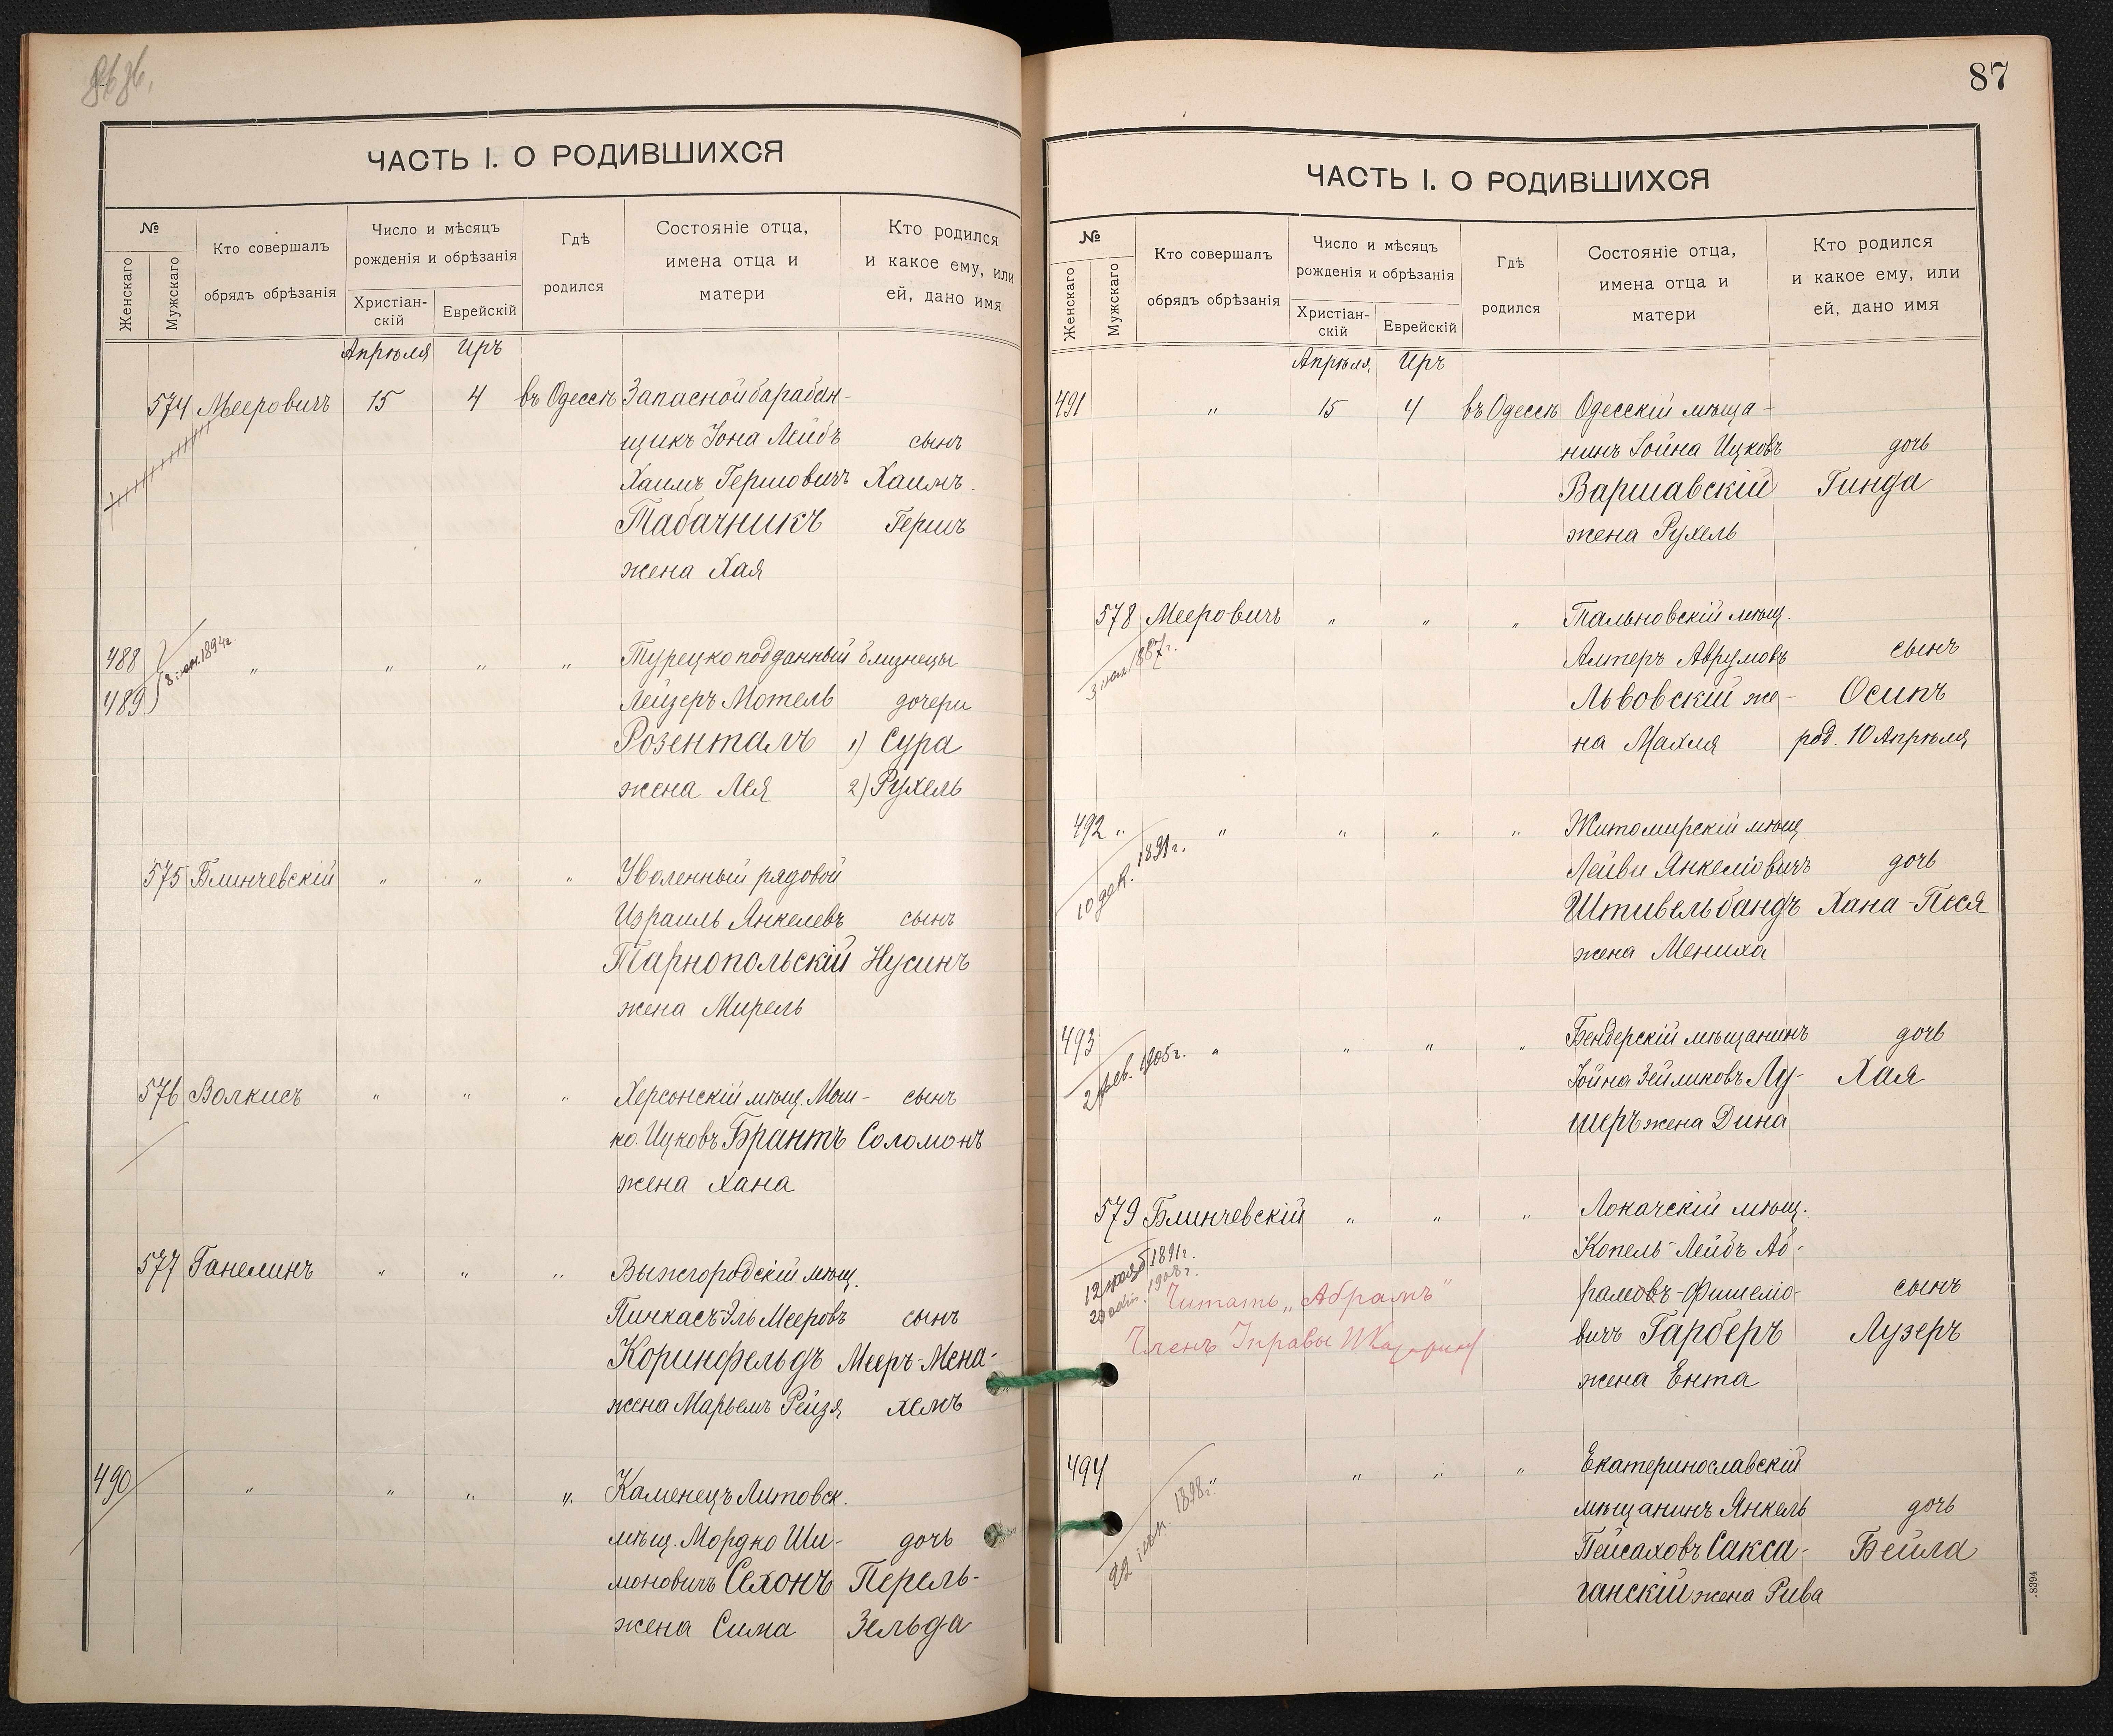 ЧАСТЬ I. О РОДИВШИХСЯ
№
Женскаго
Мужскаго
Кто совершалъ
обрядъ обрѣзанія
Число и мѣсяцъ
рожденія и обрѣзанія
Христіан-
скій
Еврейскій
Гдѣ
родился
Состояніе отца,
имена отца и
матери
Кто родился
и какое ему, или
ей, дано имя
Апрѣля Иръ
574 Мееровичъ 15 4 въ Одессѣ Запасной барабан-
щикъ Іона Лейбъ сынъ
Хаимъ Гершовичъ Хаимъ
Табачникъ Гершъ
жена Хая
488 " " " " Турецко подданный близнецы
489 8 іюн. 1894 г. Лейзеръ Мотель дочери
Розенталъ 1) Сура
жена Лея 2) Рухель
575 Блинчевскій " " " Уволенный рядовой
Израиль Янкелевъ сынъ
Тарнопольскій Нусинъ
жена Мирель
576 Волкисъ " " " Херсонскій мѣщ. Мош- сынъ
ко Ицковъ Брантъ Соломонъ
жена Хана
577 Ганелинъ " " " Вышгородскій мѣщ.
Пинкасъ-Эль Мееровъ сынъ
Коринфельдъ Мееръ-Мена-
жена Марьемъ Рейзя хемъ
490 " " " " Каменецъ Литовск.
мѣщ. Мордко Ши- дочь
моновичъ Сехонъ Перель-
жена Сима Зельда
87
ЧАСТЬ I. О РОДИВШИХСЯ
№
Женскаго
Мужскаго
Кто совершалъ
обрядъ обрѣзанія
Число и мѣсяцъ
рожденія и обрѣзанія
Христіан-
скій
Еврейскій
Гдѣ
родился
Состояніе отца,
имена отца и
матери
Кто родился
и какое ему, или
ей, дано имя
Апрѣля Иръ
491 " 15 4 въ Одессѣ Одесскій мѣща-
нинъ Іойна Ицковъ дочь
Варшавскій Гинда
жена Рухель
578 Мееровичъ " " " Тальновскій мѣщ.
Алтеръ Аврумовъ сынъ
Львовскій же- Осипъ
на Махля род. 10 Апрѣля
492 " " " " " Житомирскій мѣщ.
10 дек. 1891 г. Лейви Янкеліовичъ дочь
Штивельбандъ Хана-Песя
жена Мениха
493 " " " " Бендерскій мѣщанинъ дочь
2 фев. 1905 г. Іойна Зейликовъ Лу- Хая
шеръ жена Дина
579 Блинчевскій " " " Локачскій мѣщ.
Копель-Лейбъ Аб-
1891 г.
1908 г.
Читать „Абрамъ“ рамовъ-Фишеліо- сынъ
Членъ Управы вичъ Гарберъ Лузеръ
жена Ента
494 " " " " Екатеринославскій
22 іюн. 1898 г. мѣщанинъ Янкель дочь
Пейсаховъ Сакса- Бейла
ганскій жена Рива
8394